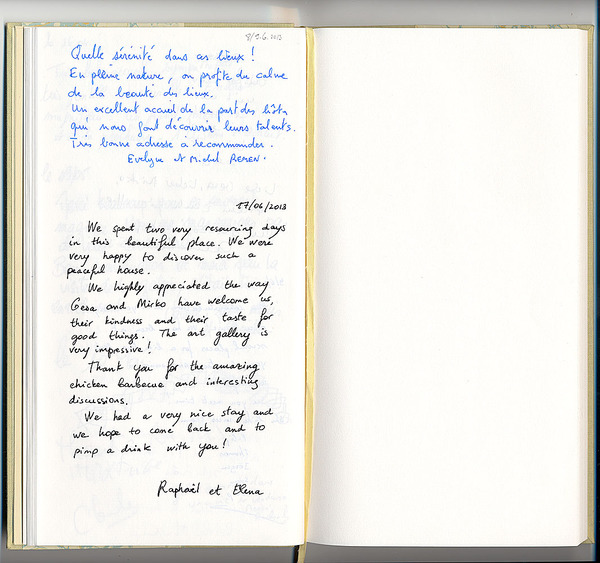 8/9.6.2013
Quelle sérénité dans ces lieux !
En pleine nature, on profite du calme
de la beauté des lieux.
Un excellent accueil de la part des hôtes
qui nous font découvrir leurs talents.
Très bonne adresse à recommander.
Evelyne et Michel
17/06/2013
We spent two very resourcing days
in this beautiful place. We were
very happy to discover such a
peaceful house.
We highly appreciated the way
Gesa and Mirko have welcome us,
their kindness and their taste for
good things. The art gallery is
very impressive!
Thank you for the amazing
chicken barbecue and interesting
discussions.
We had a very nice stay and
we hope to come back and to
pimp a drink with you!
Raphaël et Elena